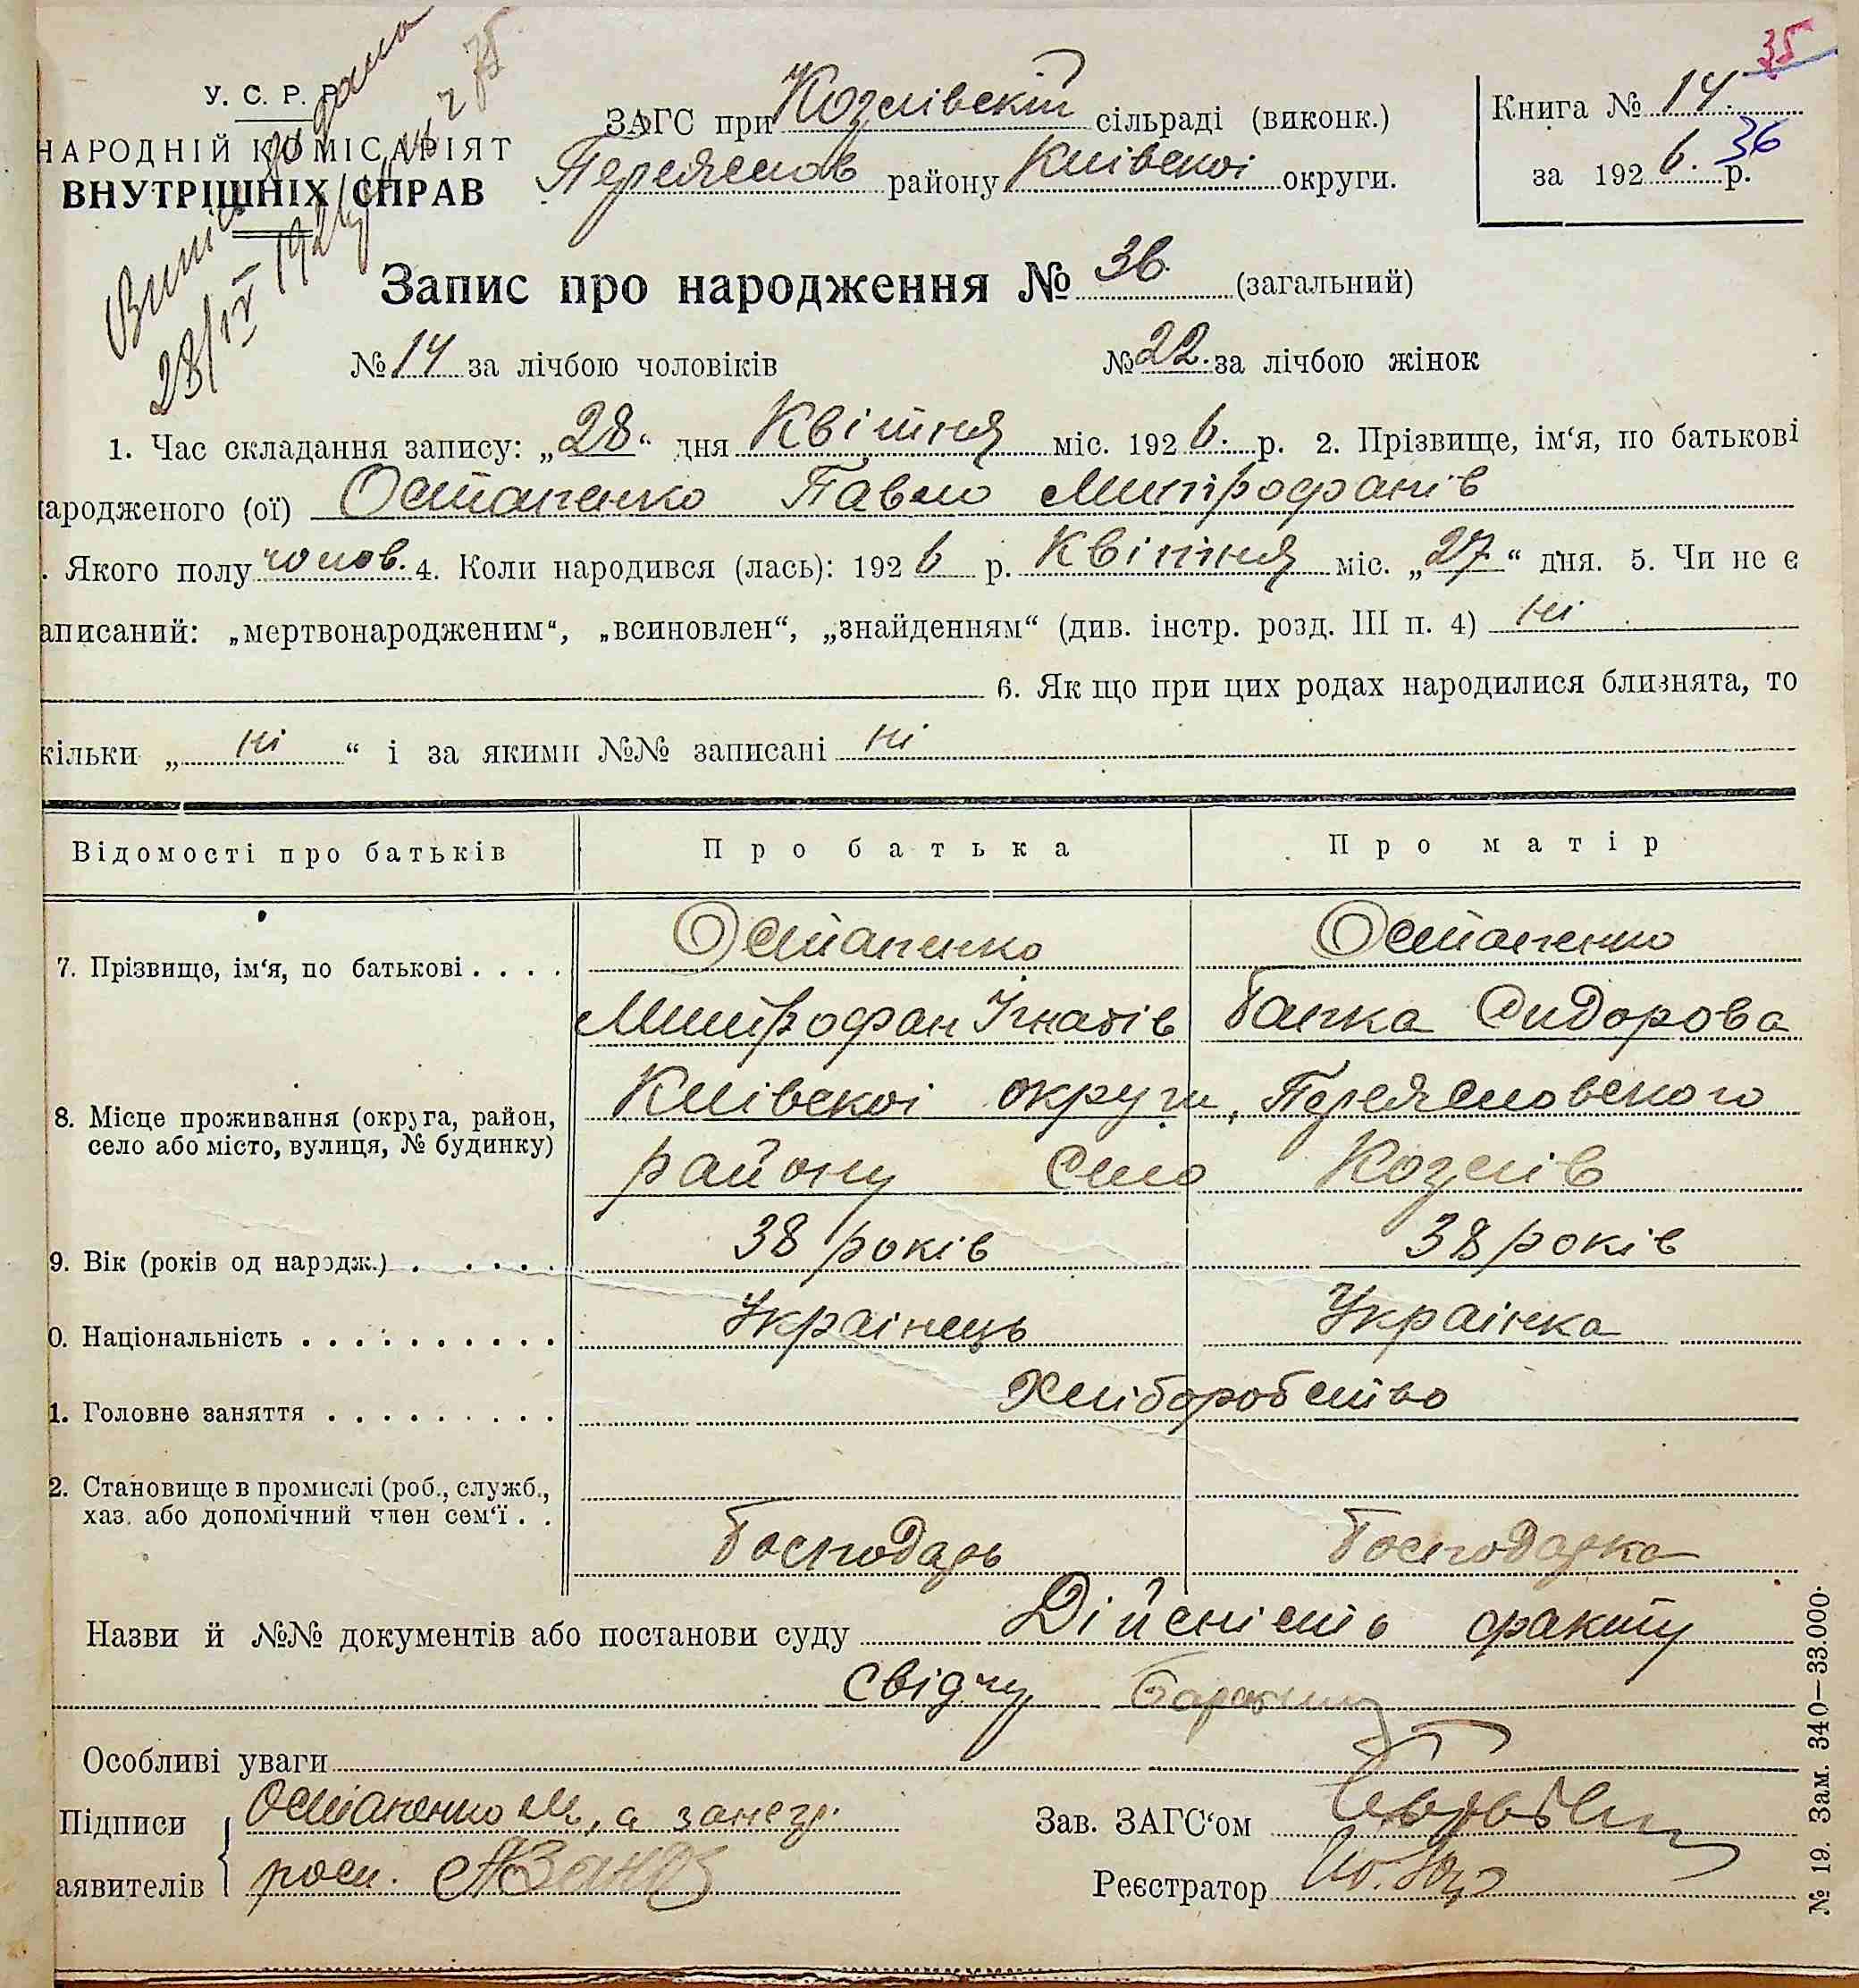 35
У. С. Р. Р.
НАРОДНІЙ КОМІСАРІЯТ
ВНУТРІШНІХ СПРАВ
28/IV
ЗАГС при Козлівскій сільраді (виконк.)
Переяслов району Київскоі округи.
Книга № 14.
36
за 1926. р.
Запис про народження № 36 (загальний)
№ 14 за лічбою чоловіків № 22. за лічбою жінок
1. Час складання запису: „28“ дня Квітня міс. 1926. р. 2. Прізвище, ім‘я, по батькові
народженого (ої) Остапенко Павло Митрофанів
. Якого полу чолов. 4. Коли народився (лась): 1926 р. Квітня міс. „27“ дня. 5. Чи не є
аписаний: „мертвонародженим“, „всиновлен“, „знайденням“ (див. інстр. розд. III п. 4) ні
6. Як що при цих родах народилися близнята, то
кільки „ ні “ і за якими №№ записані ні
Відомості про батьків Про батька Про матір
7. Прізвище, ім‘я, по батькові . . . . Остапенко Остапенко
Митрофан Ігнатів Гапка Сидорова
8. Місце проживання (округа, район, село або місто, вулиця, № будинку) Київскоі округи, Переясловского
району Село Козлів
9. Вік (років од народж.) . . . . . 38 років 38 років
0. Національність . . . . . . . . . . Українець Українка
1. Головне заняття . . . . . . . . . Хліборобство
2. Становище в промислі (роб., служб.,
хаз. або допомічний член сем‘ї . . Господарь Господарка
Назви й №№ документів або постанови суду Дійсність факту
свідчу
Особливі уваги
Підписи Остапенко М, а за негр.
аявителів росп.
Зав. ЗАГС‘ом
Реєстратор
№ 19. Зам. 340—33.000.